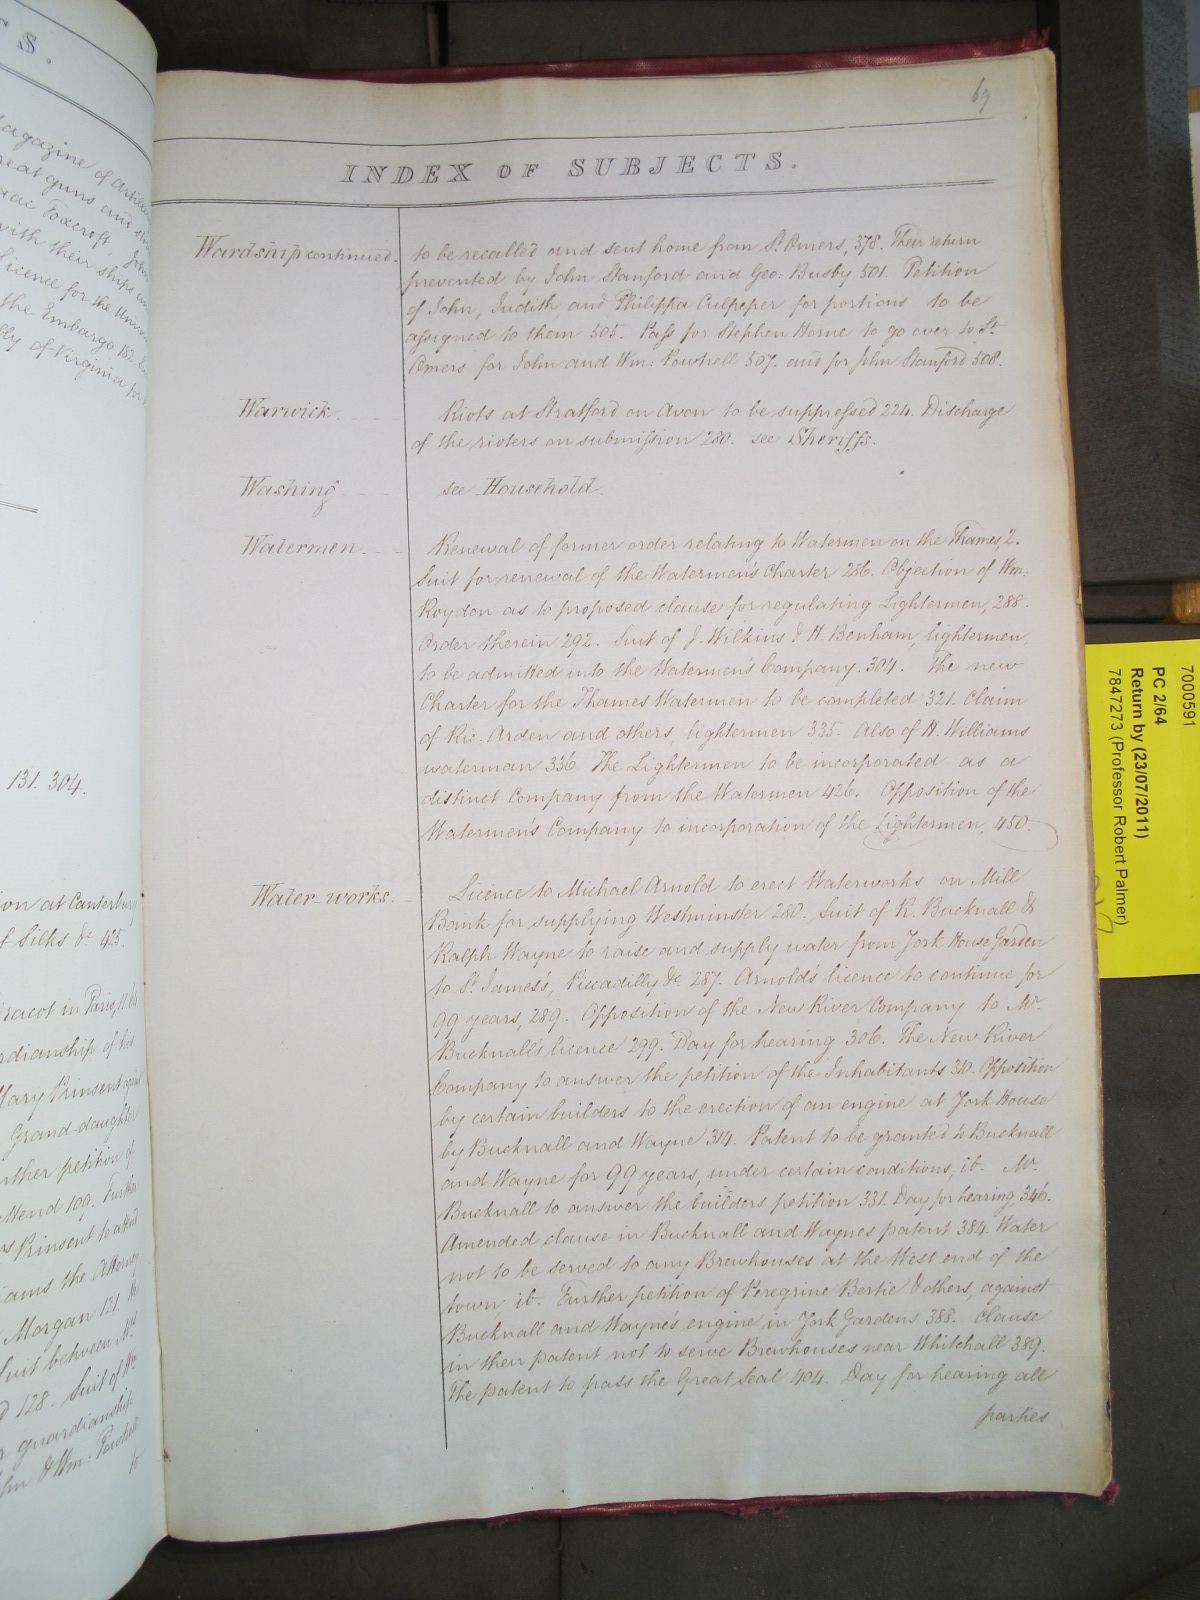 TS.
Magazine of Artille
reat guns and
Isaac Foxcroft, John
with their ships
Licence for the
the Embargo 152.
bly of Virginia for
131. 304.
ion at Canterbury
f Silks &c. 425.
racot in Paris,
rdianship of his
Mary Prinsent
Grand-daughter
rther petition of
ttend 109. Further
Prinsent to attend
iams the Attorney
Morgan 121.
Suit between Mrs
d 128. Suit of Wm
r guardianship
ohn & Wm: Powtrell
to
69
INDEX OF SUBJECTS.
Wardship continued. to be recalled and sent home from St. Omers, 378. Their return
prevented by John Stanford and Geo: Busby 501. Petition
of John, Judith and Philippa Culpeper for portions to be
assigned to them 505. Pass for Stephen Horne to go over to St.
Omers for John and Wm: Powtrell 507. and for John Stanford 508.
Warwick. Riots at Stratford on Avon to be suppressed 224. Discharge
of the rioters on submission 280. see Sheriffs.
Washing see Household
Watermen. Renewal of former order relating to Watermen on the Thames, 2.
Suit for renewal of the Watermen's Charter 286. Objection of Wm:
Roydon as to proposed clause for regulating Lightermen, 288.
Order therein 292. Suit of J. Wilkins & H. Benham, lightermen,
to be admitted into the Watermen's Company. 304. The new
Charter for the Thames Watermen to be completed 321. Claim
of Ric. Arden and others, lightermen 335. Also of H. Williams
waterman 336. The Lightermen to be incorporated as a
distinct Company from the Watermen 426. Opposition of the
Watermen's Company to incorporation of the Lightermen, 450.
Water-works. Licence to Michael Arnold to erect Waterworks on Mill
Bank for supplying Westminster 280. Suit of R. Bucknall &
Ralph Wayne to raise and supply water from York House Garden
to St. James's, Piccadilly &c. 287. Arnold's licence to continue for
99 years, 289. Opposition of the New River Company to Mr.
Bucknall's licence 299. Day for hearing 306. The New River
Company to answer the petition of the Inhabitants 310. Opposition
by certain builders to the erection of an engine at York House
by Bucknall and Wayne 314. Patent to be granted to Bucknall
and Wayne for 99 years, under certain conditions, ib. Mr.
Bucknall to answer the builders petition 331. Day for hearing 346.
Amended clause in Bucknall and Waynes patent 384. Water
not to be served to any Brewhouses at the West end of the
town, ib. Further petition of Peregrine Bertie & others, against
Bucknall and Wayne's engine in York Gardens 388. clause
in their patent not to serve Brewhouses near Whitehall 389.
The patent to pass the Great Seal 404. Day for hearing all
parties
7000591
PC 2/64
Return by (23/07/2011)
7847273 (Professor Robert Palmer)